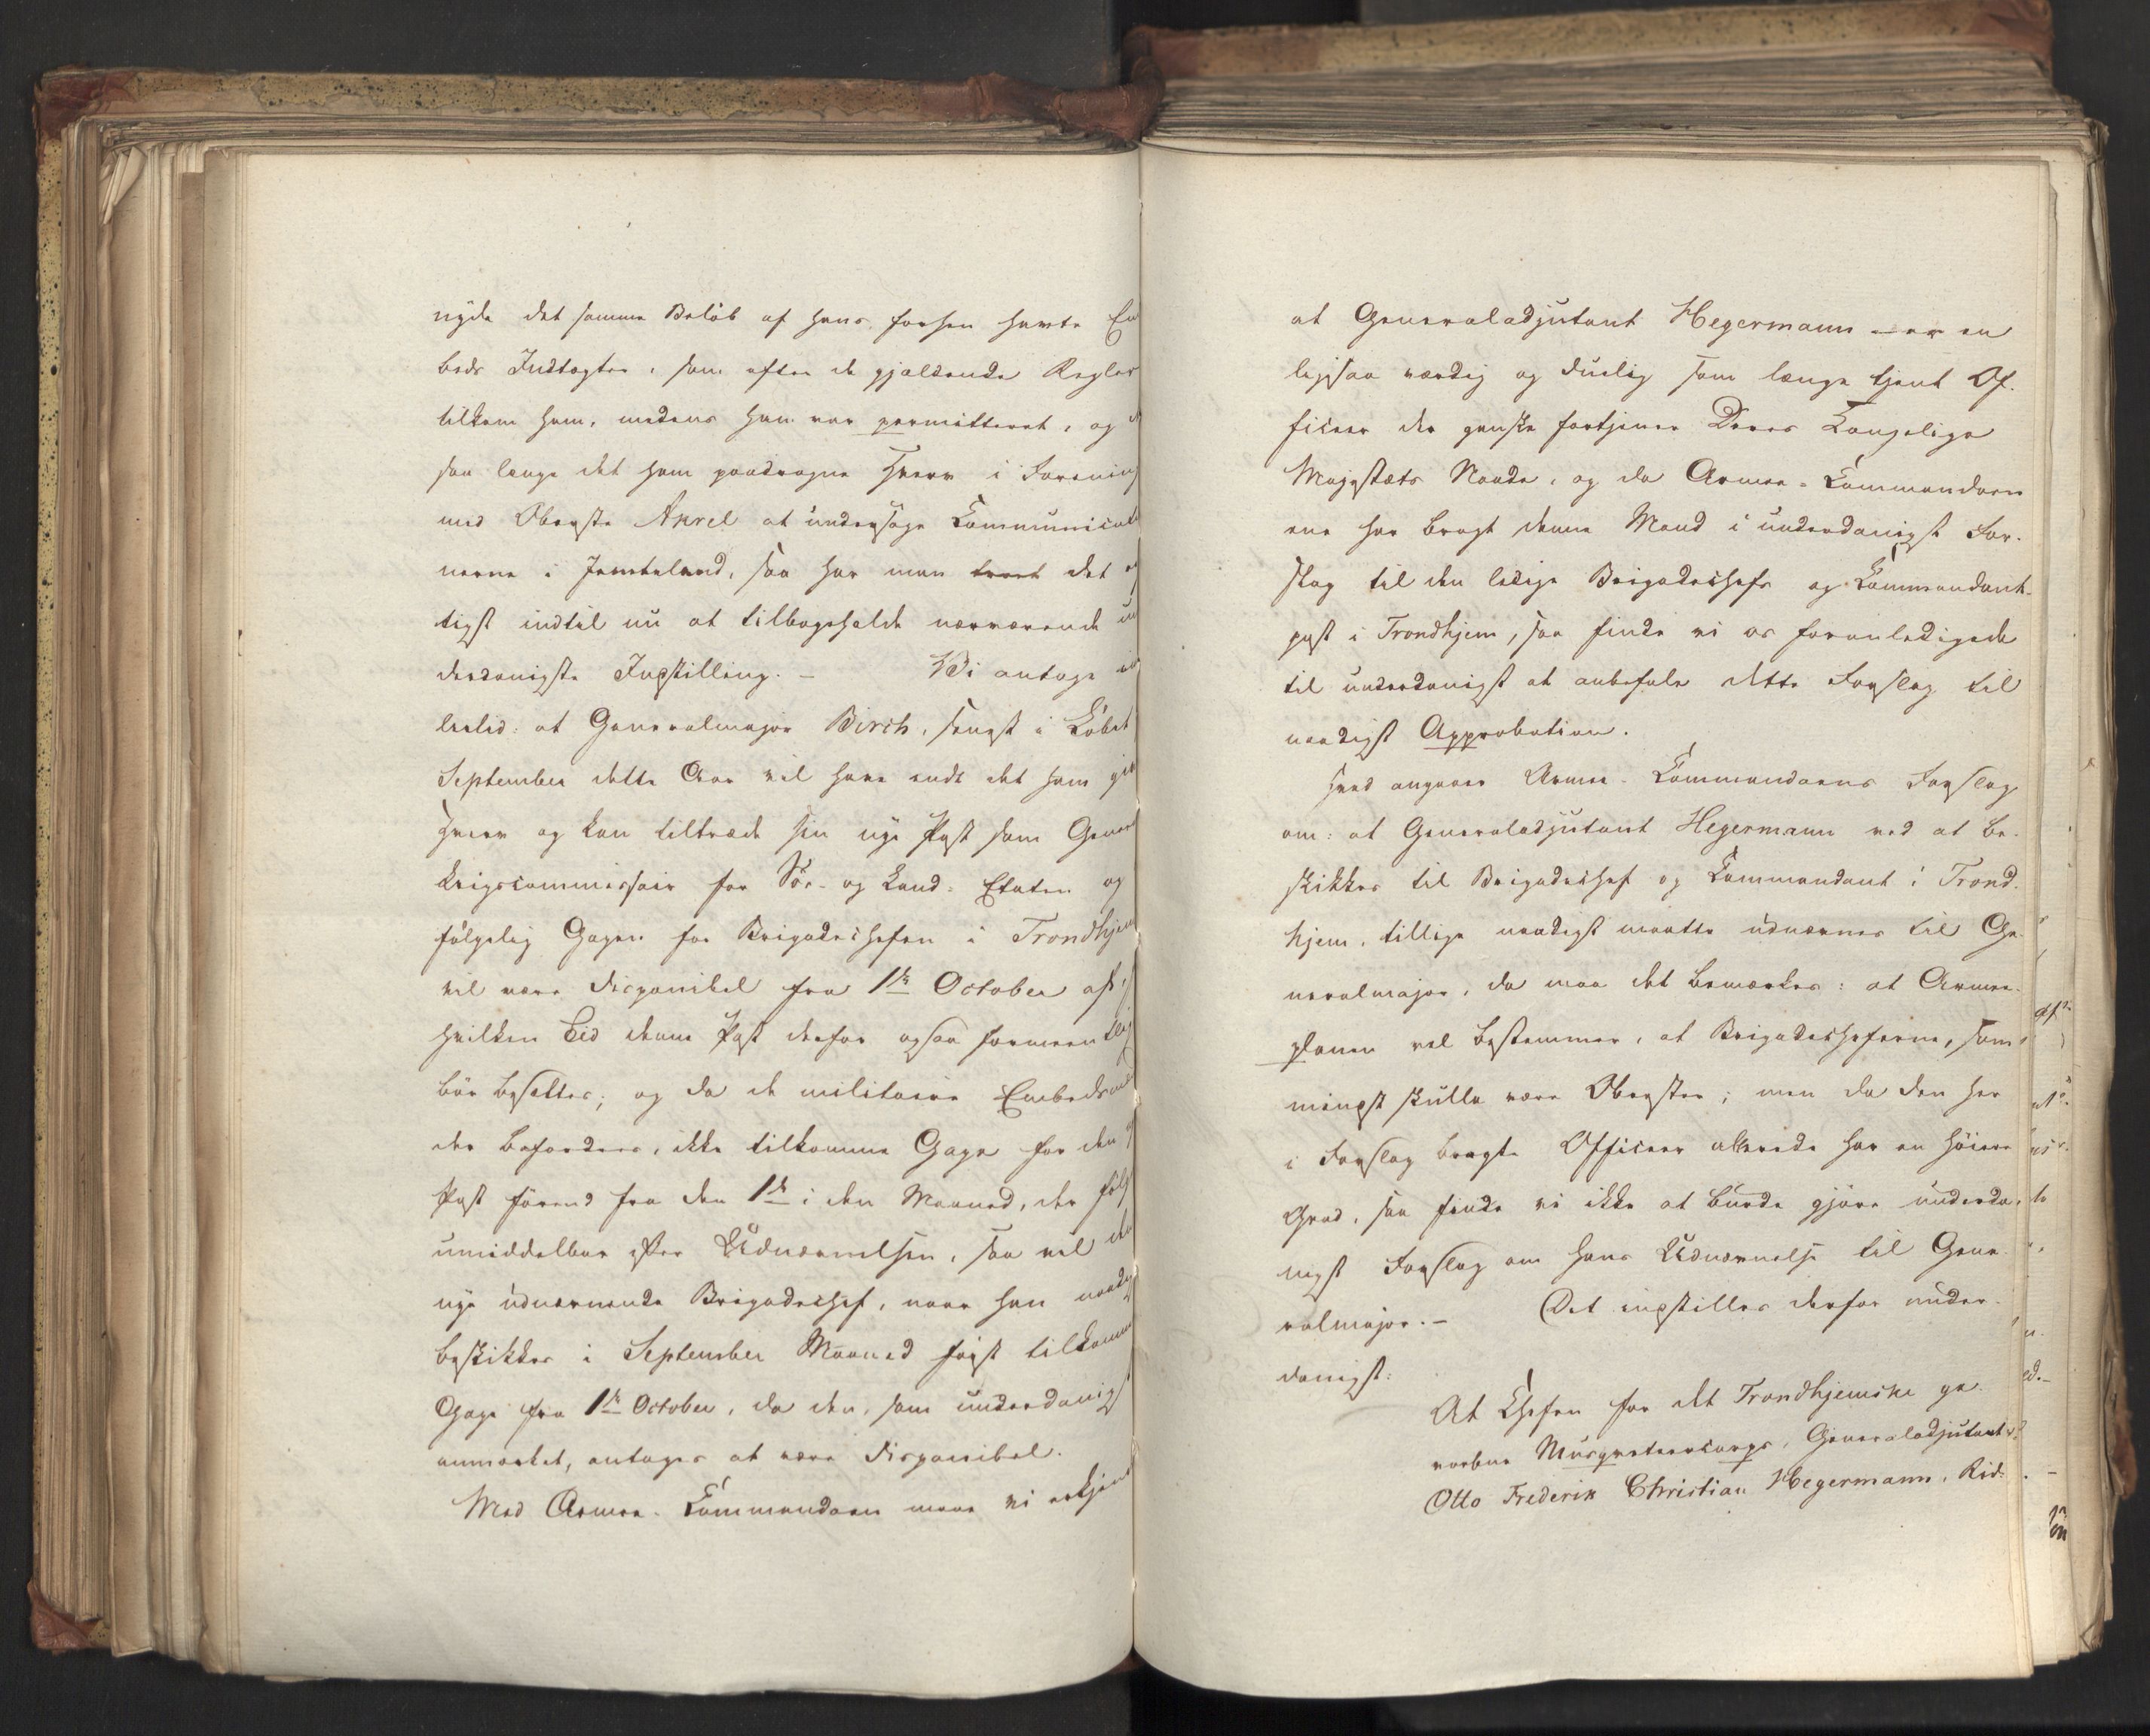 nyde det samme Beløb af hans forhen havte Em
beds Indtægter, som efter de gjældende Regler
tilkom ham, medens han var permitteret, og
saa længe det ham paadragne Hverv i Forening
med Oberste Axrel at undersøge Communicatio
nerne i Jemteland, saa har man troet det
tigst indtil nu at tilbageholde nærværende un
derdanigste Indstilling. – Vi antage
lertid: at Generalmajor Birch, senest i Løbet
September dette Aar vil have endt det ham giv
Hverv og kan tiltræde sin nye Post som General
krigscommissair for Søe- og Land-Etaten og
følgelig Gagen for Brigadechefen i Trondhjem
vil være disponibel fra 1ste October af,
hvilken Tid denne Post derfor ogsaa formeentlig
bør besættes; og da de militaire Embedsmænd
der befordres, ikke tilkomme Gage for den
Post førend fra den 1ste i den Maaned, der følg
umiddelbar efter Udnævnelsen, saa vil den
nye udnævnende Brigadechef, naar han naadig
beskikkes i September Maaned først tilkomme
Gage fra 1ste October, da den, som underdanigst
anmærket, antages at være disponibel.
Med Armee-Commandoen maae vi erkjende
at Generaladjutant Hegermann – er en
ligesaa værdig og duelig som længe tjent Of-
ficeer der ganske fortjener Deres Kongelige
Majestæts Naade, og da Armee-Commandoen
ene har bragt denne Mand i underdanigst For-
slag til den ledige Brigadechefs og Commandant-
post i Trondhjem, saa finde vi os foranledigede
til underdanigst at anbefale dette Forslag til
naadigst Approbation.
Hvad angaaer Armee-Commandoens Forslag
om: at Generaladjutant Hegermann ved at be-
skikkes til Brigadechef og Commandant i Trond-
hjem, tillige naadigst maatte udnævnes til Ge-
neralmajor, da maa det bemærkes: at Armee-
planen vel bestemmer, at Brigadecheferne, som
mingst skulle være Oberster; men da den her
i Forslag bragte Officeer allerede har en høiere
Grad, saa finde vi ikke at burde gjøre underda-
nigst Forslag om hans Udnævnelse til Gene-
ralmajor. – Det indstilles derfor under-
danigst:
At Chefen for det Trondhjemske ge-
vorbne Musqueteercorps, Generaladjutant
Otto Frederik Christian Hegermann, Rid-